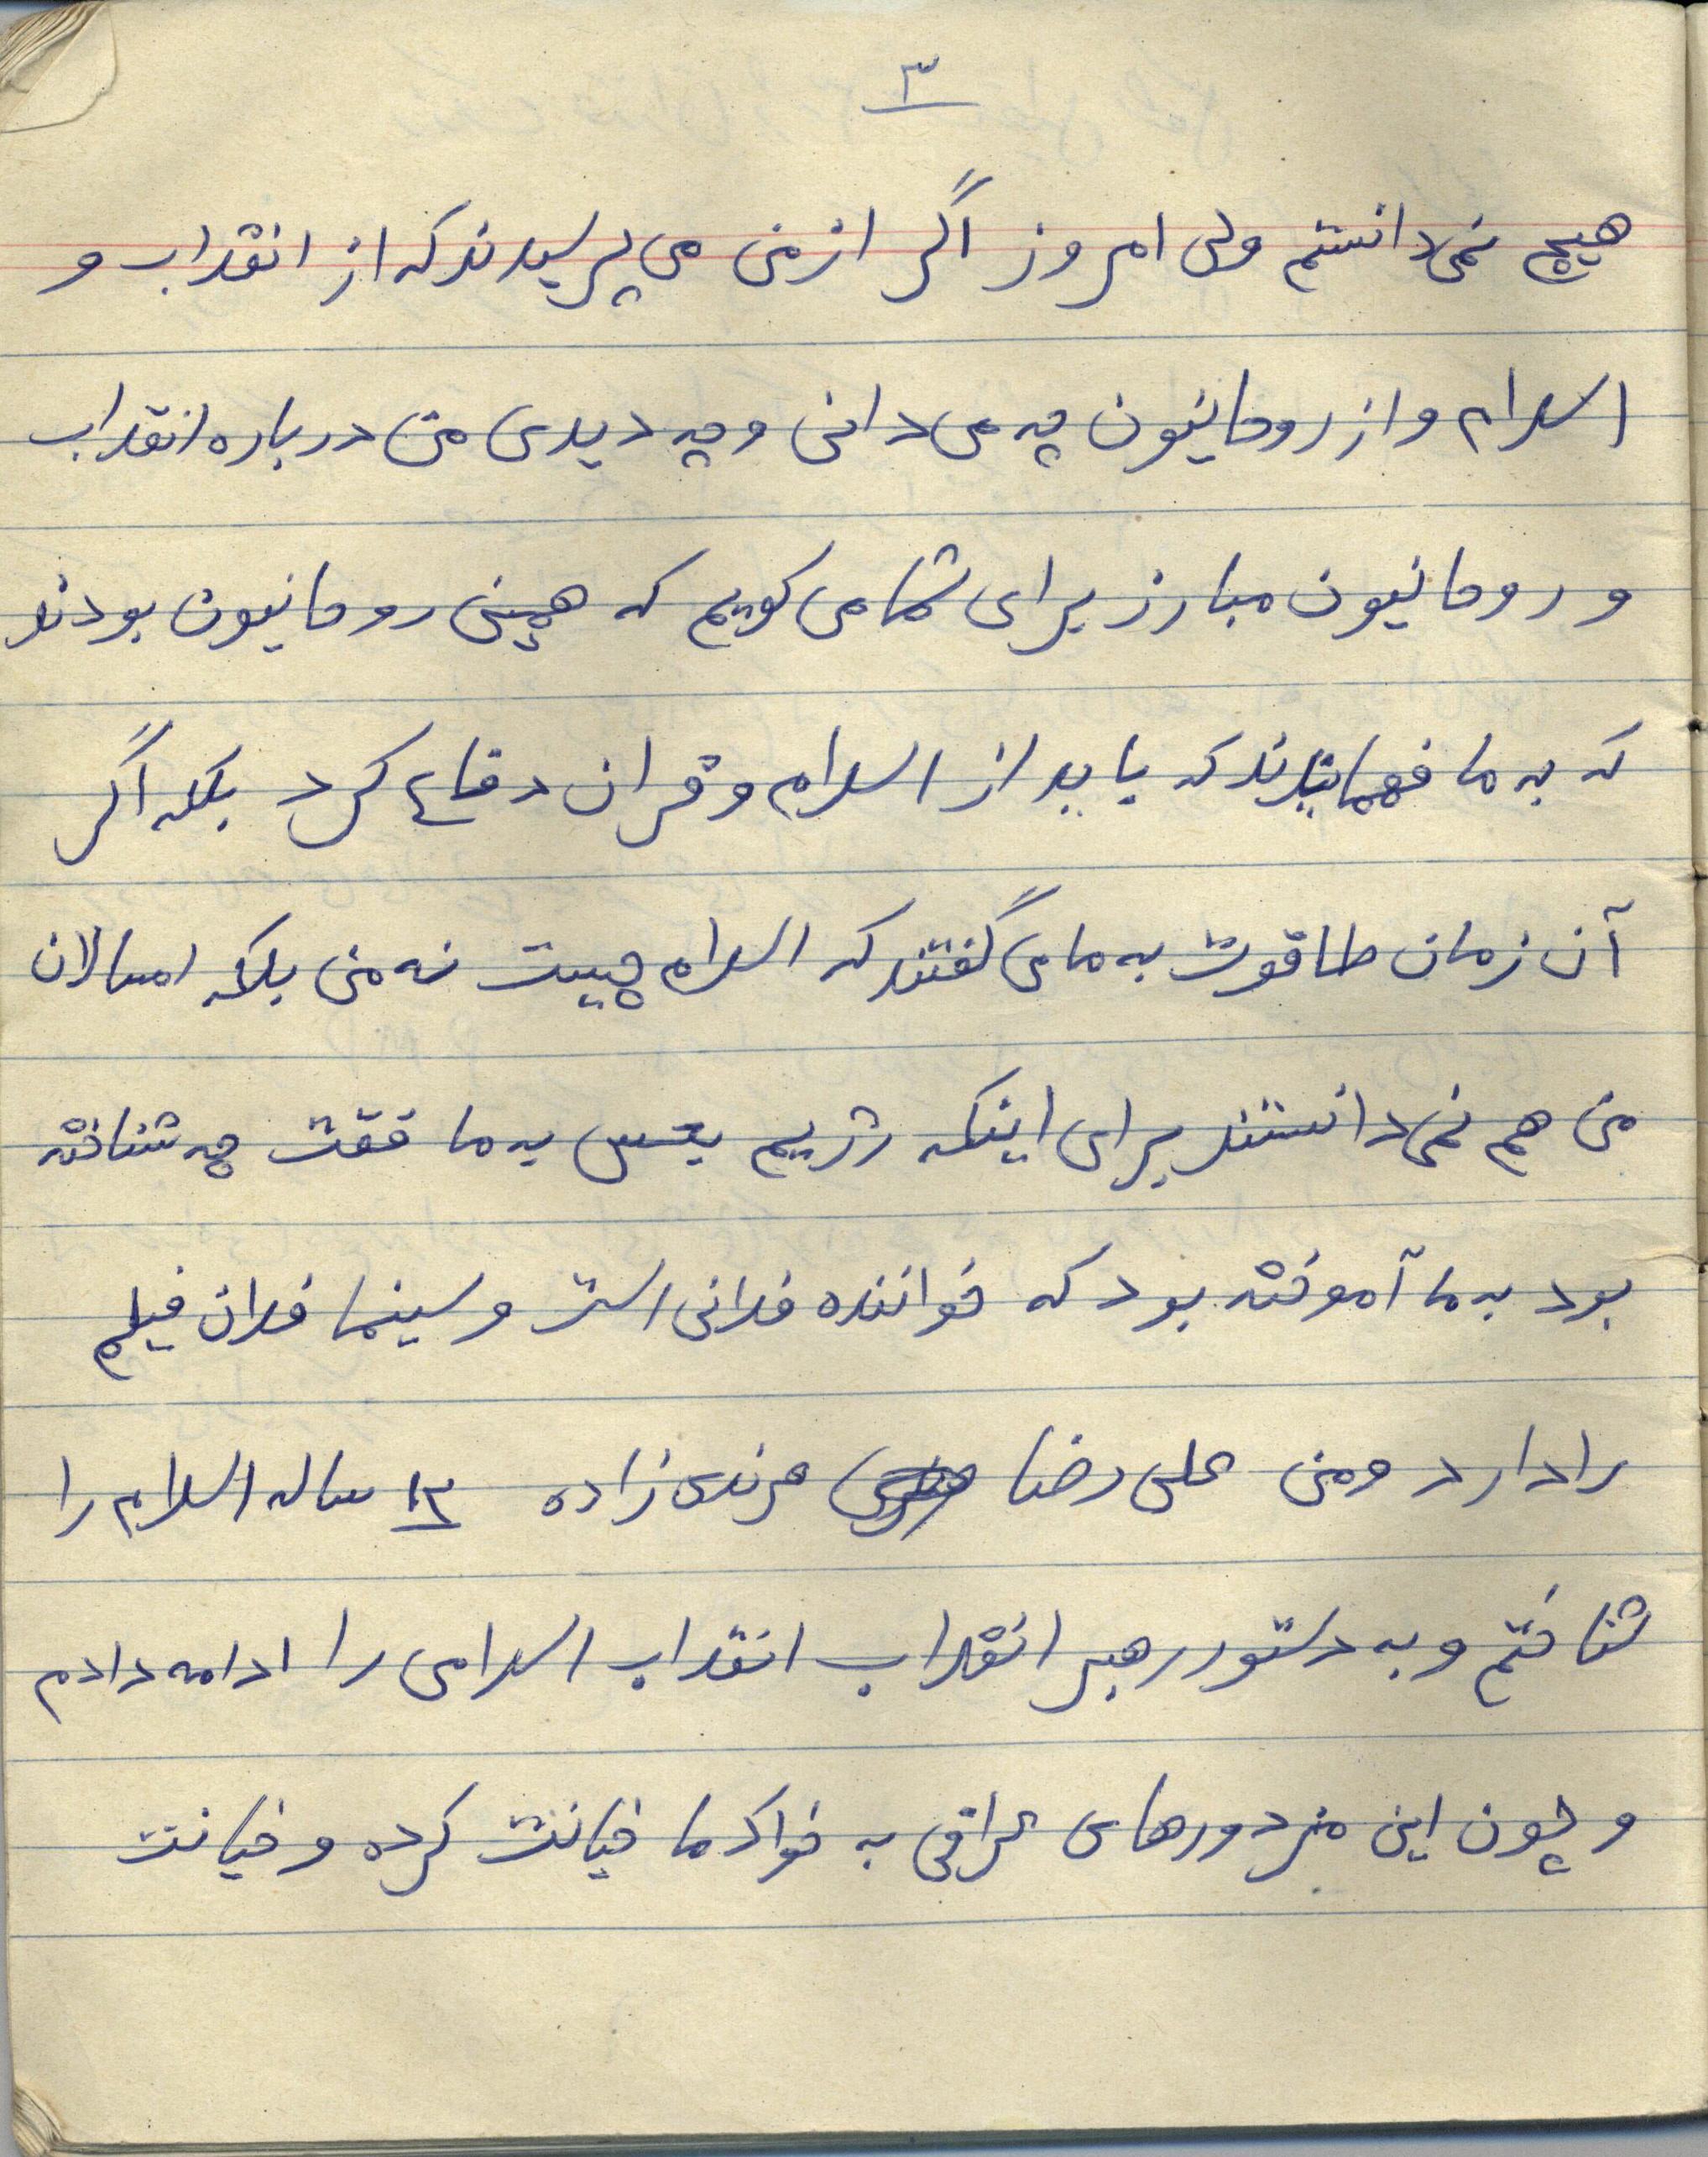 ۳
هیچ نمی‌دانستم ولی امروز اگر از من می پرسیدند که از انقلاب و
اسلام و از روحانیون چه می‌دانی و چه دیدی من درباره انقلاب
و روحانیون مبارز برای شما می گویم که همین روحانیون بودند
که به ما فهمانیدند که باید از اسلام و قران دفاع کرد بلکه اگر
آن زمان طاقوت به ما می گفتند که اسلام چیست نه من بلکه امسالان
من هم نمی‌دانستند برای اینکه رژیم بعس به ما فقت چه شناخته
بود به ما آموخته بود که خواننده فلانی است و سینما فلان فیلم
را دارد و من علی رضا مرندی زاده ۱۳ ساله اسلام را
شناختم و به دستور رهبر انقلاب انقلاب اسلامی را ادامه دادم
و چون این مزدورهای عراقی به خواک ما خیانت کرده و خیانت